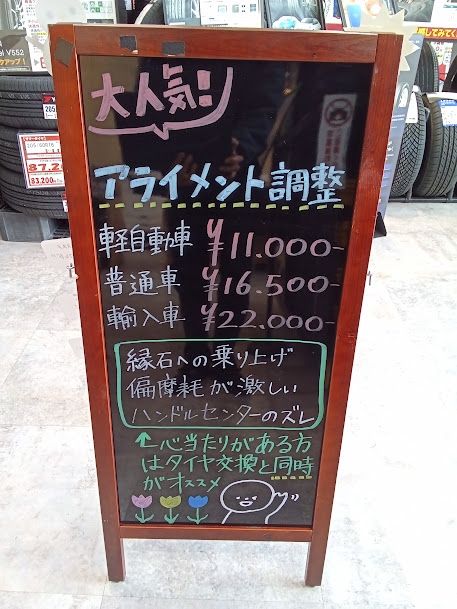 大人気!
アライメント調整
軽自動車 ¥11.000-
普通車 ¥16.500-
輸入車 ¥22.000-
縁石への乗り上げ
偏摩耗が激しい
ハンドルセンターのズレ
↑心当たりがある方
はタイヤ交換と同時
がオススメ
V552
205
83,200